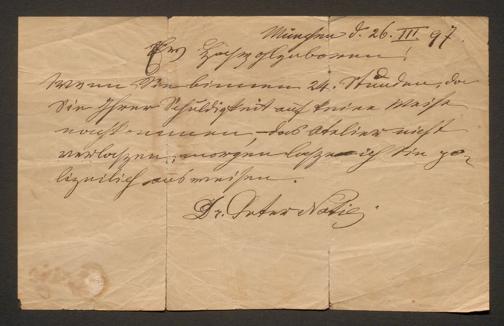 München d. 26. III. 97.
Euer Hochwohlgeboren!
Wenn Sie binnen 24. Stunden, da
Sie Ihrer Schuldigkeit auf keine Weise
nachkommen, das Atelier nicht
verlassen, morgen lasse ich Sie po-
lizeilich ausweisen.
Dr. Peter